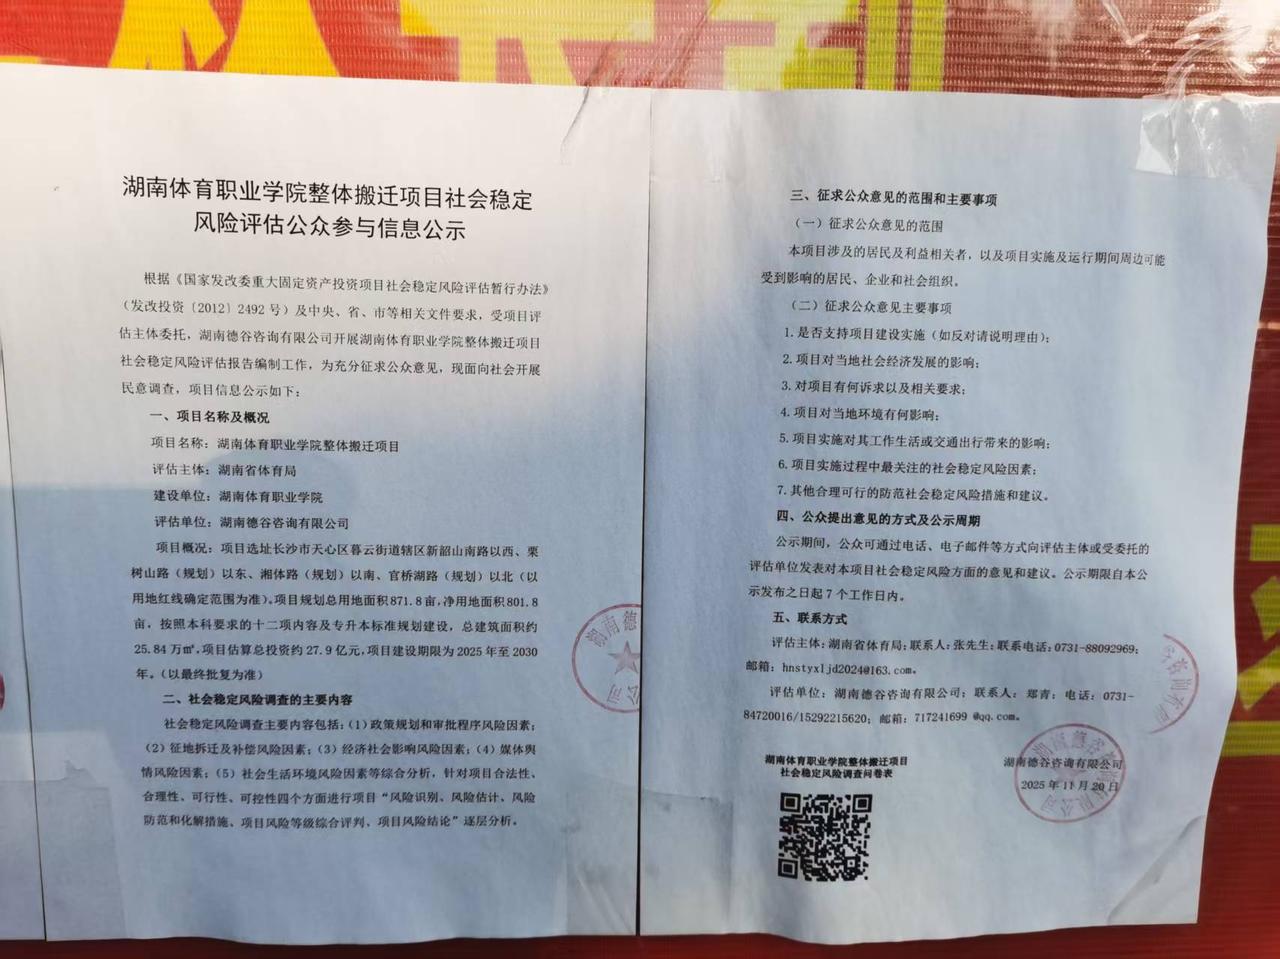 湖南体育职业学院整体搬迁项目社会稳定
风险评估公众参与信息公示
根据《国家发改委重大固定资产投资项目社会稳定风险评估暂行办法》
（发改投资〔2012〕2492 号）及中央、省、市等相关文件要求，受项目评
估主体委托，湖南德谷咨询有限公司开展湖南体育职业学院整体搬迁项目
社会稳定风险评估报告编制工作，为充分征求公众意见，现面向社会开展
民意调查，项目信息公示如下：
一、项目名称及概况
项目名称：湖南体育职业学院整体搬迁项目
评估主体：湖南省体育局
建设单位：湖南体育职业学院
评估单位：湖南德谷咨询有限公司
项目概况：项目选址长沙市天心区暮云街道辖区新韶山南路以西、栗
树山路（规划）以东、湘体路（规划）以南、官桥湖路（规划）以北（以
用地红线确定范围为准）。项目规划总用地面积871.8亩，净用地面积801.8
亩，按照本科要求的十二项内容及专升本标准规划建设，总建筑面积约
25.84 万㎡。项目估算总投资约 27.9 亿元，项目建设期限为 2025 年至 2030
年。（以最终批复为准）
二、社会稳定风险调查的主要内容
社会稳定风险调查主要内容包括：（1）政策规划和审批程序风险因素；
（2）征地拆迁及补偿风险因素；（3）经济社会影响风险因素；（4）媒体舆
情风险因素；（5）社会生活环境风险因素等综合分析，针对项目合法性、
合理性、可行性、可控性四个方面进行项目“风险识别、风险估计、风险
防范和化解措施、项目风险等级综合评判、项目风险结论”逐层分析。
三、征求公众意见的范围和主要事项
（一）征求公众意见的范围
本项目涉及的居民及利益相关者，以及项目实施及运行期间周边可能
受到影响的居民、企业和社会组织。
（二）征求公众意见主要事项
1. 是否支持项目建设实施（如反对请说明理由）；
2. 项目对当地社会经济发展的影响；
3. 对项目有何诉求以及相关要求；
4. 项目对当地环境有何影响；
5. 项目实施对其工作生活或交通出行带来的影响；
6. 项目实施过程中最关注的社会稳定风险因素；
7. 其他合理可行的防范社会稳定风险措施和建议。
四、公众提出意见的方式及公示周期
公示期间，公众可通过电话、电子邮件等方式向评估主体或受委托的
评估单位发表对本项目社会稳定风险方面的意见和建议。公示期限自本公
示发布之日起 7 个工作日内。
五、联系方式
评估主体：湖南省体育局；联系人：张先生；联系电话：0731-88092969；
邮箱：hnstyxljd2024@163.com。
评估单位：湖南德谷咨询有限公司；联系人：郑青；电话：0731-
84720016/15292215620；邮箱：717241699 @qq.com。
湖南体育职业学院整体搬迁项目
社会稳定风险调查问卷表
湖南德谷咨询有限公司
2025 年 11 月 20 日